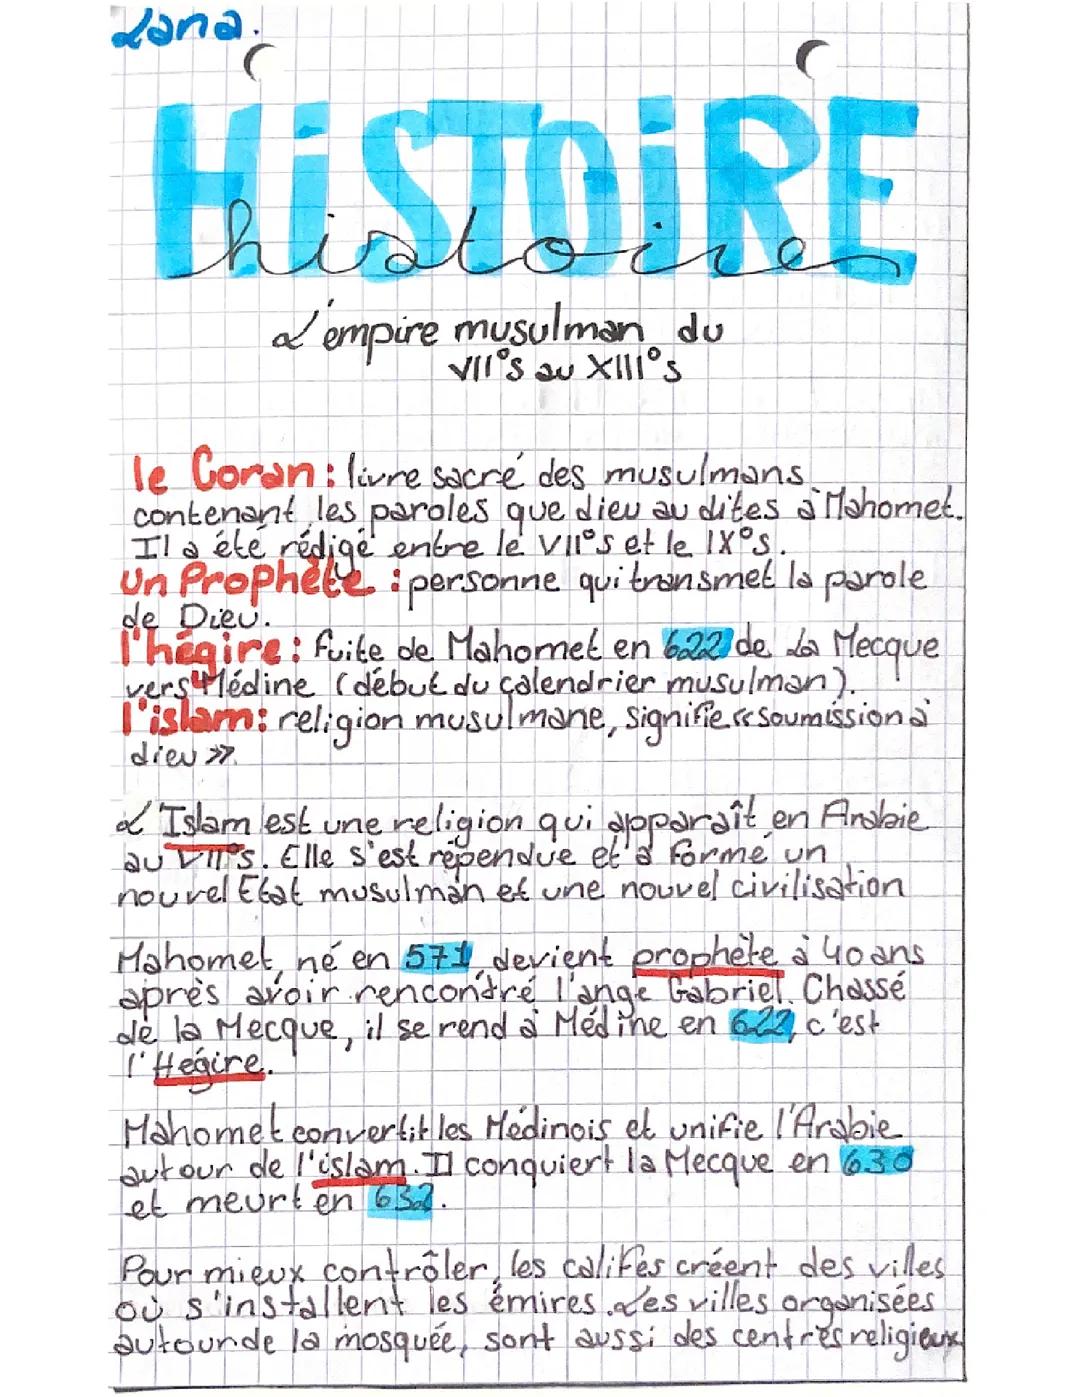 Lana.
HiSTOiRE
histoire
L'empire musulman du
VII°s au XIII°s
le Coran : livre sacré des musulmans
contenant les paroles que dieu au dites à Mahomet.
Il a été rédigé entre le VII°s et le IX°s.
Un Prophète : personne qui transmet la parole
de Dieu.
l'hégire : fuite de Mahomet en 622 de La Mecque
vers Médine (début du calendrier musulman).
l'islam : religion musulmane, signifie «soumission à
dieu».
L'Islam est une religion qui apparaît en Arabie
au VII°s. Elle s'est répendue et a formé un
nouvel Etat musulman et une nouvel civilisation
Mahomet, né en 571, devient prophète à 40 ans
après avoir rencontré l'ange Gabriel. Chassé
de la Mecque, il se rend à Médine en 622, c'est
l'Hégire.
Mahomet convertit les Médinois et unifie l'Arabie
autour de l'islam. Il conquiert la Mecque en 630
et meurt en 632.
Pour mieux contrôler, les califes créent des villes
où s'installent les émires. Les villes organisées
autour de la mosquée, sont aussi des centres religieux